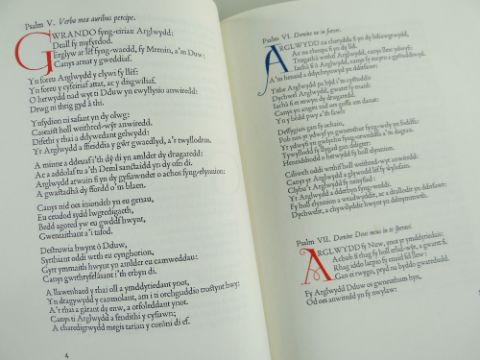 Psalm V. Verba mea auribus percipe.
GWRANDO fyng-eiriau Arglwydd:
Deall fy myfyrdod.
Erglyw ar lêf fyng-waedd, fy Mrenin, a'm Duw:
Canys arnat y gweddiaf.
Yn foreu Arglwydd y clywi fy llef:
Yn foreu y cyfeiriaf attat, ac y disgwiliaf.
O herwydd nad wyt ti Dduw yn ewyllysio anwiredd:
Drwg ni thrig gyd â thi.
Ynfydion ni safant yn dy olwg:
Caseaist holl weithred-wŷr anwiredd.
Difethi y rhai a ddywedant gelwydd:
Yr Arglwydd a ffieiddia y gŵr gwaedlyd, a'r twyllodrus.
A minne a ddeuaf i'th dŷ di yn amlder dy drugaredd:
Ac a addolaf tu a'th Deml sanctaidd yn dy ofn di.
Arglwydd arwain fi yn dy gyfiawnder o achos fyng-elynnion:
A gwastadhâ dy ffordd o'm blaen.
Canys nid oes iniondeb yn eu genau,
Eu ceudod sydd lwgredigaeth,
Bedd agored yw eu gwddf hwynt,
Gwenieithiant a'i tafod.
Destruwia hwynt ô Dduw,
Syrthiant oddi wrth eu cynghorion,
Gyrr ymmaith hwynt yn amlder eu camweddau:
Canys gwrthryfelasant i'th erbyn di.
A llawenhaed y rhai oll a ymddyriedant ynot,
Yn dragywydd y canmolant, am i ti orchguddio trostynt hwy:
A'r rhai a garant dy enw, a orfoleddant ynot.
Canys ti Arglwydd a fendithi y cyfiawn:
A charedigrwydd megis tarian y coroni di ef.
4
Psalm VI. Domine ne in furore.
ARGLWYDD na cherydda fi yn dy lidiawgrwydd:
Ac na chospa fi yn dy lid.
Trugarhâ wrthif Arglwydd, canys llesc ydwyf fi:
Iachâ fi ô Arglwydd, canys fy escyrn a
A'm henaid a ddychrynwyd yn ddirfawr:
Tithe Arglwydd pa hŷd i'm cystuddio
Dychwel Arglwydd, gwaret fy enaid:
Iachâ fi er mwyn dy drugaredd.
Canys yn angeu nid oes goffa am danat:
Yn y bedd pwy a'th fawl
Deffygiais gan fy ochain,
Ciliwch oddi wrthif holl weithred-wŷr anwiredd:
Canys yr Arglwydd a glywodd lêf fy wylofain.
Clybu'r Arglwydd fy neisyfiad:
Yr Arglwydd a dderbyn fyng-weddi.
Psalm VII. Domine Deus meus in te speravi.
ARGLWYDD fy Nuw, ynot yr ymddyriedais:
Achub fi rhag fy holl erlid-wŷr, a gwaret fi.
Rhag iddo larpio fy enaid fel llew:
Gan ei rwygo, pryd na byddo gwaredudd.
Fy Arglwydd Dduw os gwneuthum hyn,
Od oes anwiredd yn fy nwylaw: